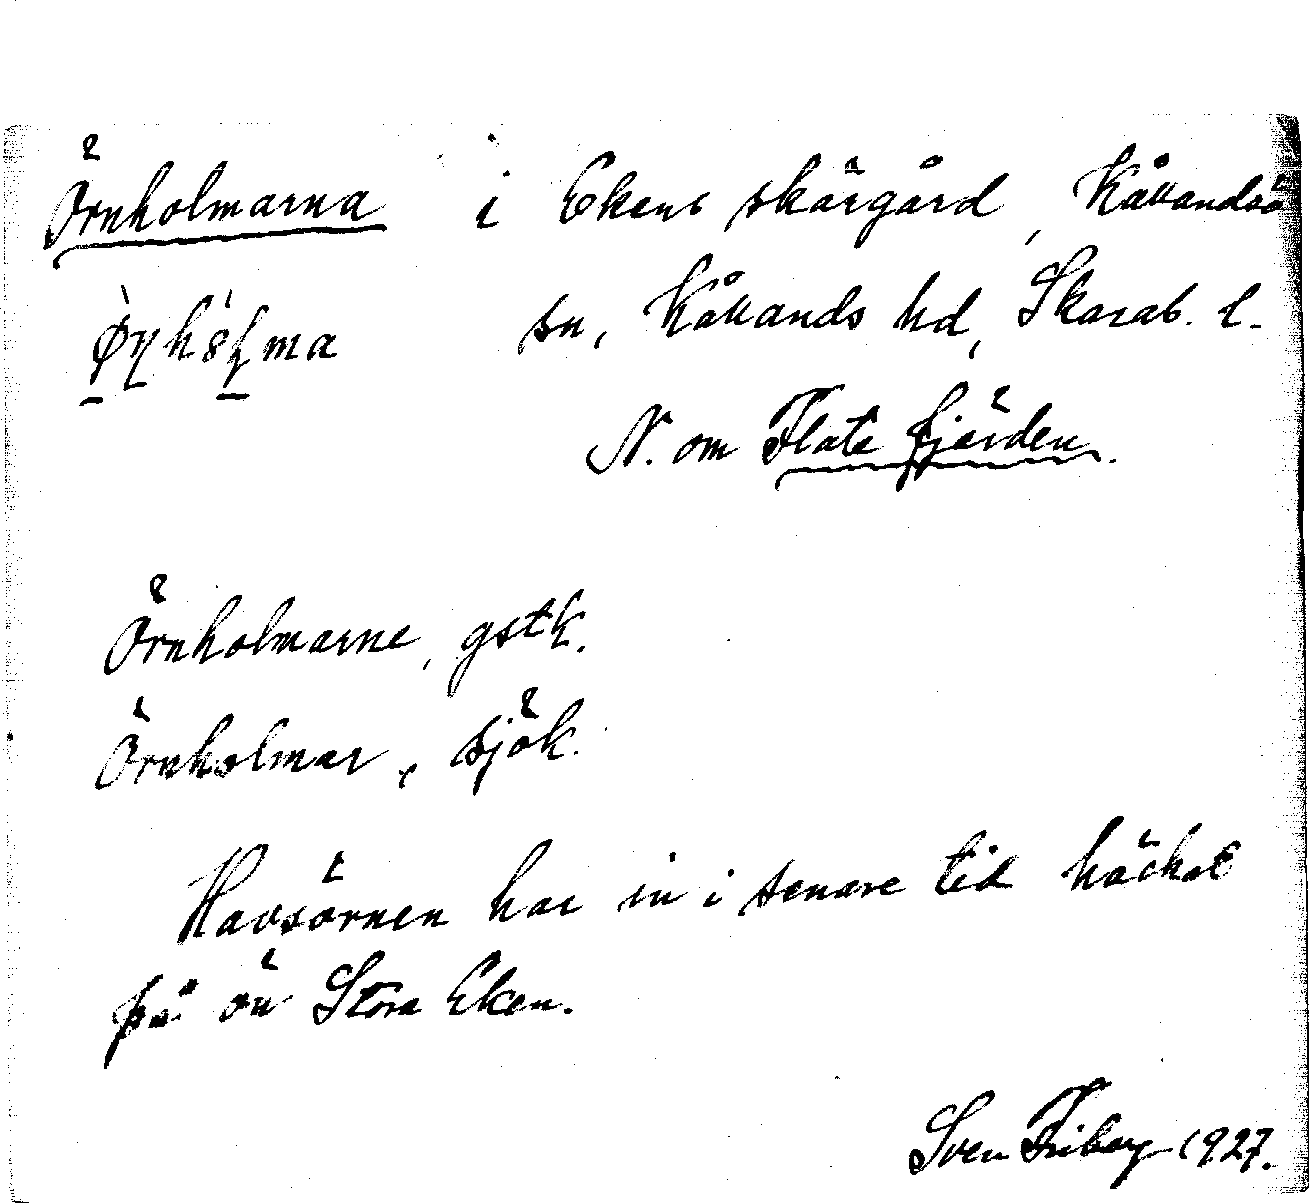 Örnholmarna i Ekens skärgård, Kållandsö
sn, Kållands hd, Skarab. l.
N. om Flate fjärden.
Örnholmarne, gstk.
Örnholmar, sjök.
Havsörnen har in i senare tid häckat
på ön Stora Eken.
Sven Friberg 1927.